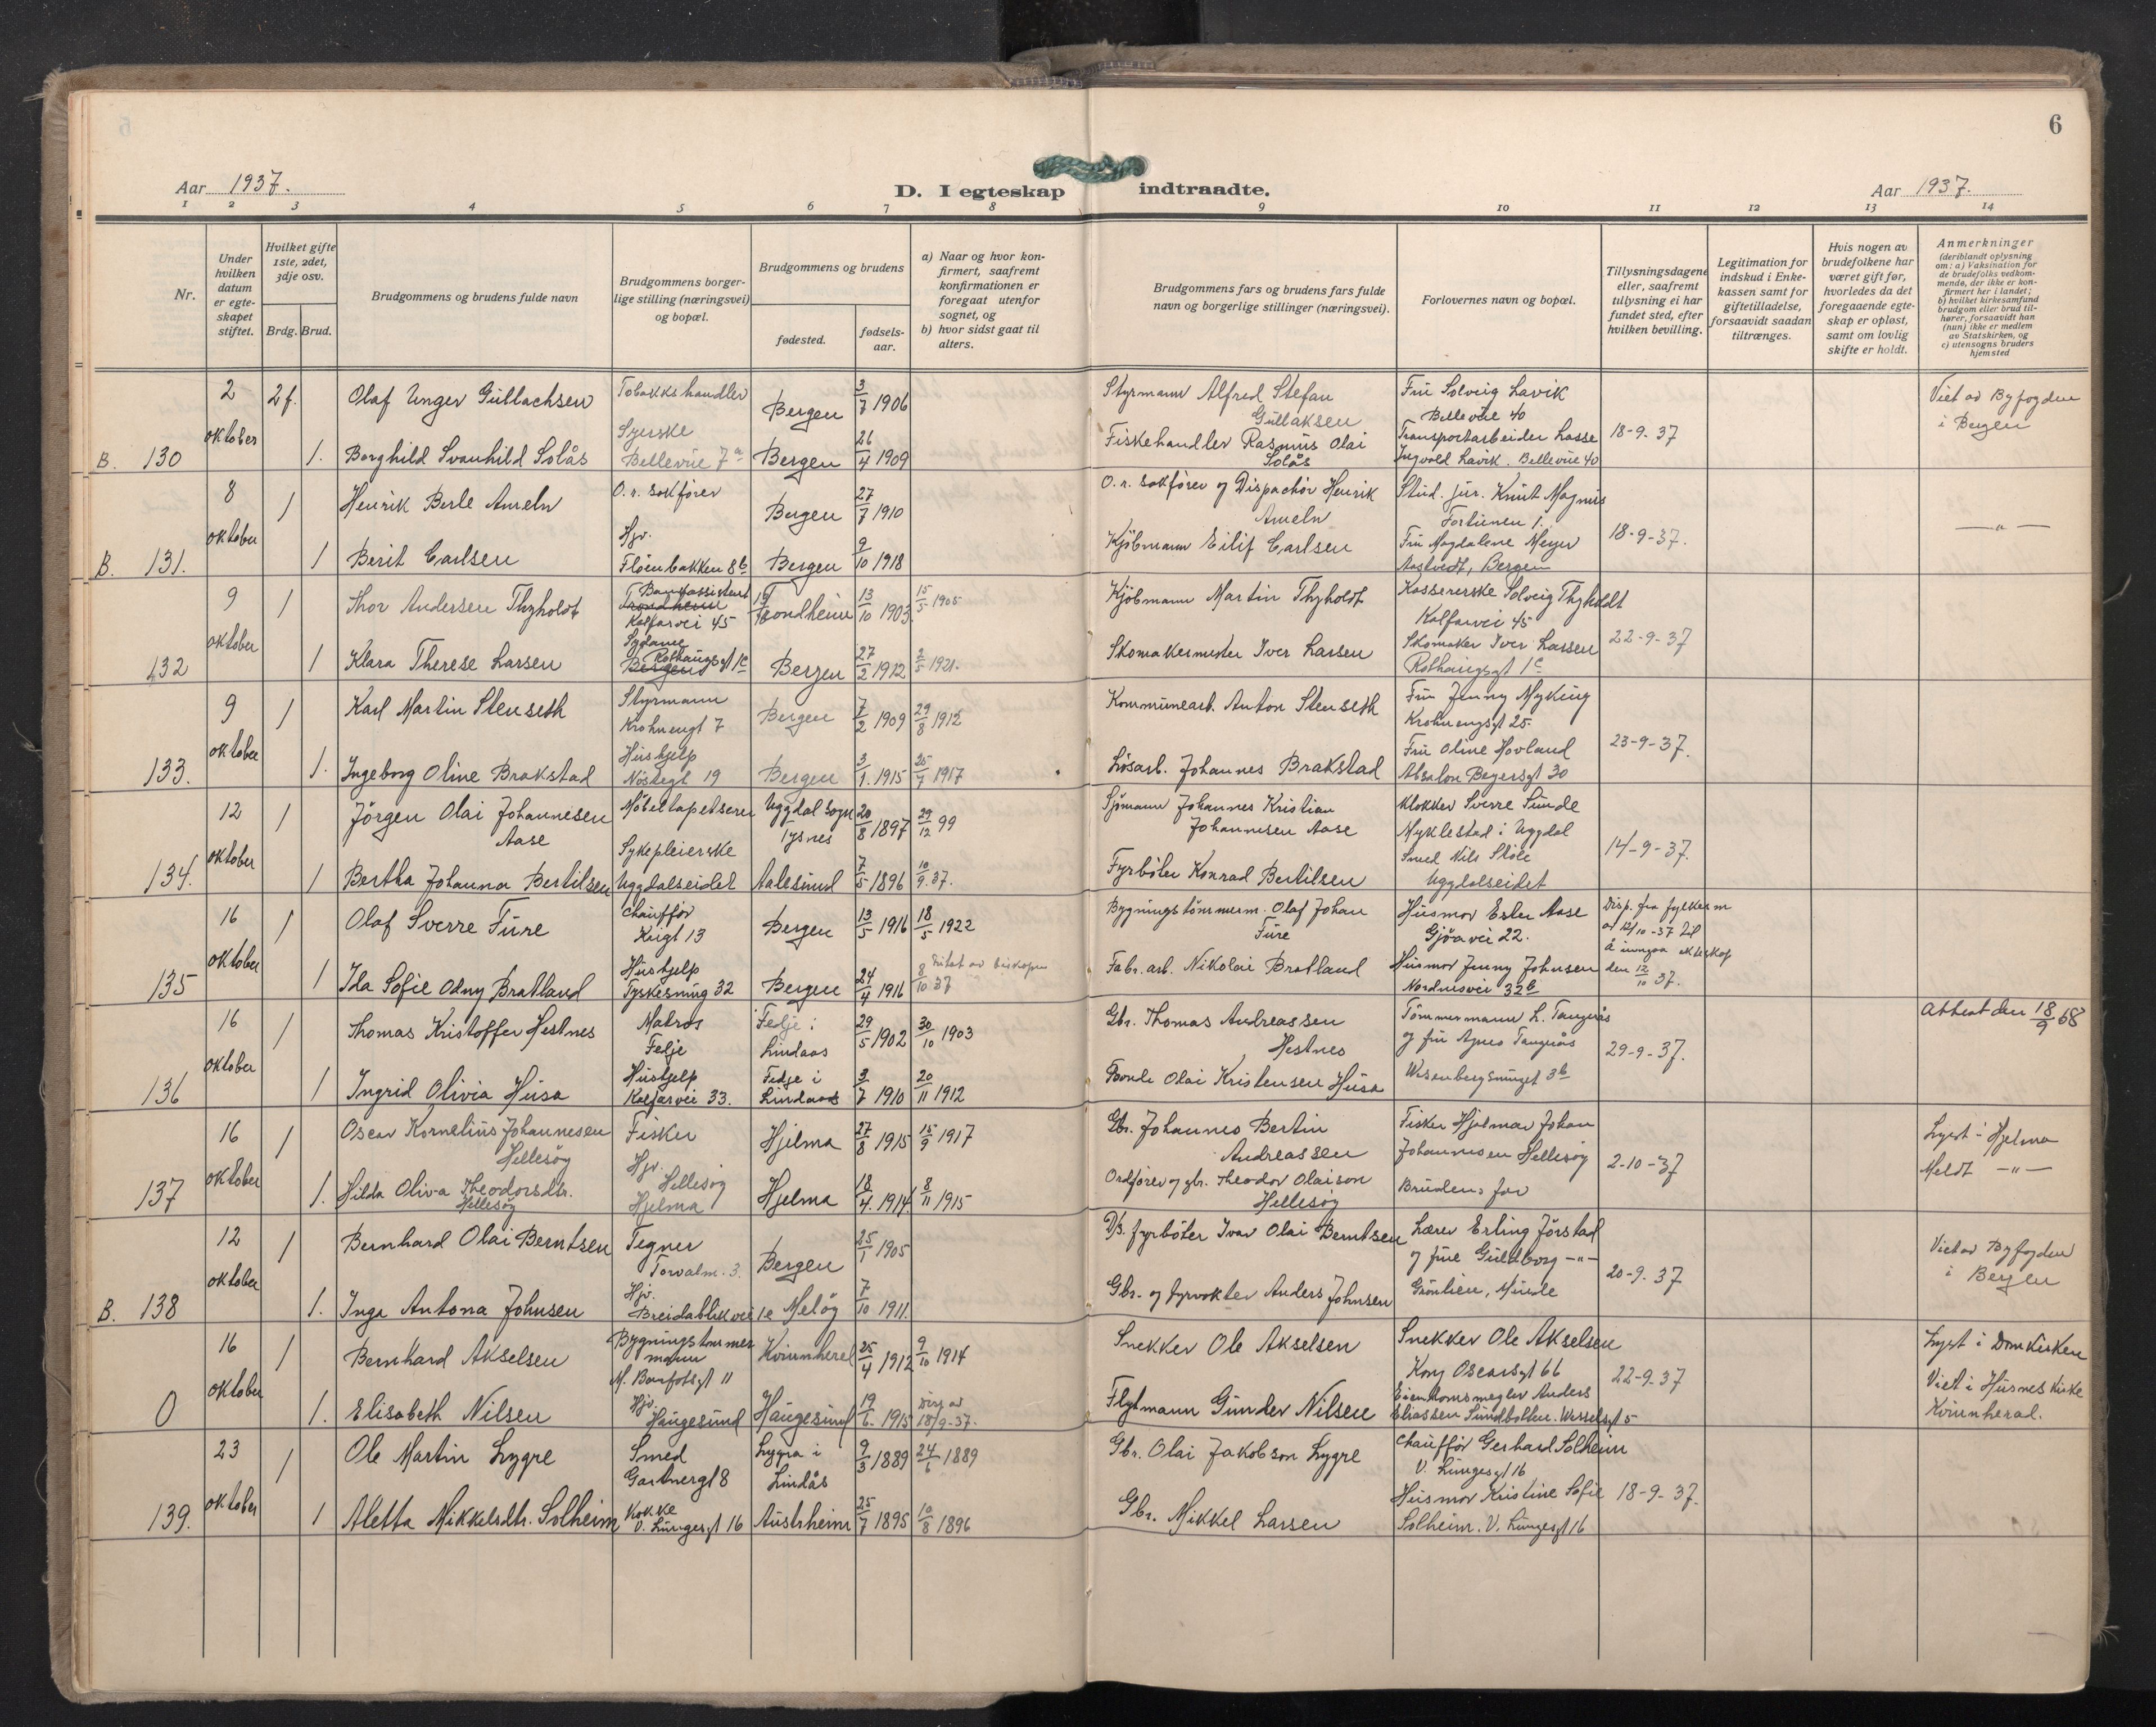 6
Aar 1937.
D. I egteskap indtraadte.
Aar 1937.
1 2 3 4 5 6 7 8 9 10 11 12 13 14
Nr.
Under hvilken datum er egteskapet stiftet.
Hvilket gifte 1ste, 2det, 3dje osv.
Brdg. Brud.
Brudgommens og brudens fulde navn
Brudgommens borgerlige stilling (næringsvei) og bopæl.
Brudgommens og brudens
fødested.
fødselsaar.
a) Naar og hvor konfirmert, saafremt konfirmationen er foregaat utenfor sognet, og
b) hvor sidst gaat til alters.
Brudgommens fars og brudens fars fulde navn og borgerlige stillinger (næringsvei).
Forlovernes navn og bopæl.
Tillysningsdagene eller, saafremt tillysning ei har fundet sted, efter hvilken bevilling.
Legitimation for indskud i Enkekassen samt for giftetilladelse, forsaavidt saadan tiltrænges.
Hvis nogen av brudefolkene har været gift før, hvorledes da det foregaaende egteskap er opløst, samt om lovlig skifte er holdt.
Anmerkninger
(deriblandt oplysning om: a) Vaksination for de brudefolks vedkommende, der ikke er konfirmert her i landet; b) hvilket kirkesamfund brudgom eller brud tilhører, forsaavidt han (hun) ikke er medlem av Statskirken, og c) utensogns bruders hjemsted
B. 130 2 oktober
2 f. Olaf Unger Gullachsen Tobakkshandler Bergen 3/7 1906
Styrmann Alfred Stefan Gullaksen
Fru Solveig Lavik
Bellevue 40
Viet av Byfogden i Bergen
1. Borghild Svanhild Solås Syerske Bellevue 7a Bergen 26/4 1909
Fiskehandler Rasmus Olai Solås
Transportarbeider Lasse Ingvald Lavik. Bellevue 40
18-9-37
B. 131. 8 oktober
1 Henrik Berle Ameln O.r. sakfører Bergen 27/7 1910
O.r. sakfører og Dispachør Henrik Ameln
Stud. jur. Knut Magnus
Fortunen 1.
1 Berit Carlsen Hjv. Fløenbakken 8b Bergen 9/10 1918
Kjøbmann Eilif Carlsen
Fru Magdalene Meyer
Aastvedt, Bergen
18-9-37.
— " —
132 9 oktober
1 Thor Andersen Thyholdt Bankassistent Trondheim Kalfarvei 45 Trondheim 13/10 1903 15/5 1905
Kjøbmann Martin Thyholdt
Kassererske Solveig Thyholdt
Kalfarvei 45
1 Klara Therese Larsen Sydame Bergen Rothaugsgt 1c Bergen 27/2 1912 2/5 1921.
Skomakermester Iver Larsen
Skomaker Iver Larssen
Rothaugsgt 1c
22-9-37
133. 9 oktober
1 Karl Martin Stenseth Styrmann Krohnengt 7 Bergen 7/2 1909 29/8 1912
Kommunearb. Anton Stenseth
Fru Jenny Myking
Krohnengsgt 25.
1. Ingeborg Oline Brakstad Hushjelp Nøstegt 19 Bergen 3/1. 1915 25/4 1917
Løsarb. Johannes Brakstad
Fru Oline Hovland
Absalon Beyersgt 30
23-9-37.
134. 12 oktober
1 Jörgen Olai Johannesen Aase Møbeltapetserer Uggdal Sogn Tysnes 20/8 1897 29/12 99
Sjømann Johannes Kristian Johannesen Aase
Klokker Sverre Sunde
Myklestad i Uggdal
1 Bertha Johanna Bertilsen Sykepleierske Uggdalseidet Aalesund 7/5 1896 10/9.37.
Fyrbøter Konrad Bertilsen
Smed Nils Støle
Uggdalseidet
14-9-37.
135 16 oktober
1 Olaf Sverre Fure Chauffør Krigt 13 Bergen 13/5 1916 18/5 1922
Bygningstømmerm. Olaf Johan Fure
Husmor Ester Aase
Gjøavei 22.
Disp. fra fylkesm
af 12/10-37 til
å inngaa ekteskap
den 12/10 37.
1 Ida Sofie Odny Bratland Hushjelp Tyskesmug 32 Bergen 24/4 1916 8/10 37
Fabr. arb. Nikolai Bratland
Husmor Jenny Johnsen
Nordnesvei 32b
136 16 oktober
1 Thomas Kristoffer Hestnes Matros Fedje Fedje i Lindaas 29/5 1902 30/10 1903
Gbr. Thomas Andreassen Hestnes
Tømmermann L. Tangerås
og fru Agnes Tangerås
Attest den 18/9 68
1 Ingrid Olivia Husa Hushjelp Kalfarvei 33. Fedje i Lindaas 3/7 1910 20/11 1912
Bonde Olai Kristensen Husa
Wesenbergsmuget 3b
29-9-37.
137 16 oktober
1 Oscar Kornelius Johannesen Hellesøy Fisker Hjelma 27/8 1915 15/9 1917
Gbr. Johannes Bertin Andreassen
Fisker Hjalmar Johan
Johannesen Hellesøy
Lyst i Hjelma
1. Hilda Oliva Theodorsdtr. Hellesøy Hjv. Hellesøy Hjelma Hjelma 18/4. 1914 8/11 1915
Ordfører og gbr. Theodor Olaison Hellesøy
Brudens far
2-10-37
Meldt — " —
B. 138 12 oktober
1 Bernhard Olai Berntsen Tegner Torvalm. 3. Bergen 25/1 1905
D/s. fyrbøter Ivar Olai Berntsen
Lærer Erling Jørstad
og frue Guldborg — " —
Viet av Byfogden i Bergen
1. Inga Antona Johnsen Hjv. Breidablikvei 1e Meløy 7/10 1911.
Gbr. og fyrvokter Anders Johnsen
Grønlien, Minde
20-9-37
0 16 oktober
1 Bernhard Akselsen Bygningstømmermann M. Barfotsgt 11 Kvinnherel 25/4 1912 9/10 1914
Snekker Ole Akselsen
Snekker Ole Akselsen
Kong Oscarsgt 66
Lyst i Domkirken
1. Elisabeth Nilsen Hjv. Haugesund Haugesund 19/6. 1915 Disp av 18/9-37.
Flytmann Gunder Nilsen
Eiendomsmegler Anders
Eliassen Sundbotten. Wesselsgt 5
22-9-37
Viet i Husnes Kirke
Kvinnherad.
139. 23 oktober
1 Ole Martin Lygre Smed Gartnergt 8 Lygra i Lindås 9/3 1889 24/6 1889
Gbr. Olai Jakobson Lygre
Chauffør Gerhard Solheim
V. Lungesgt 16
1 Aletta Mikkelsdtr. Solheim Kokke V. Lungesgt 16 Austrheim 25/7 1895 10/8 1896
Gbr. Mikkel Larsen
Husmor Kristine Sofie
Solheim. V. Lungesgt 16
18-9-37.